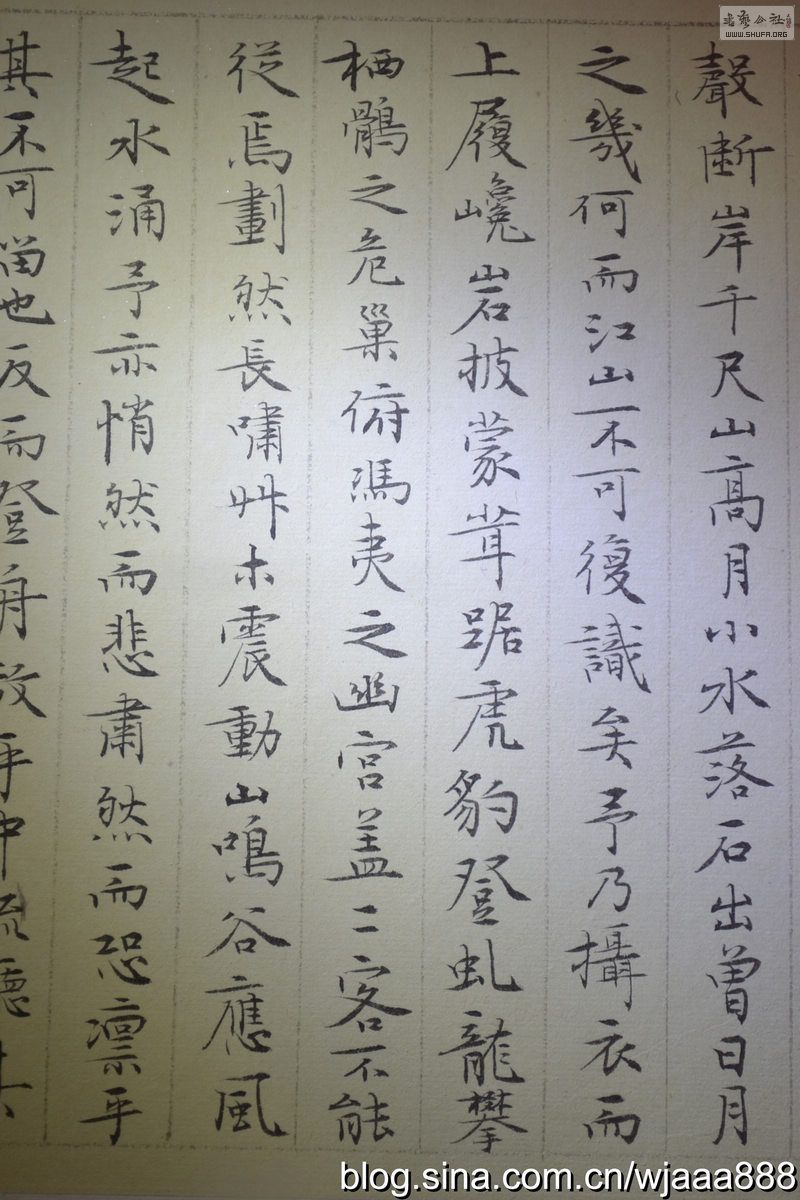 聲斷岸千尺山高月小水落石出曾日月
之幾何而江山不可復識矣予乃攝衣而
上履巉岩披蒙茸踞虎豹登虬龍攀
栖鶻之危巢俯馮夷之幽宮盖二客不能
從焉劃然長嘯艸木震動山鳴谷應風
起水涌予亦悄然而悲肅然而恐凛乎
其不可留也反而登舟放乎中流聽其
書藝公社
WWW.SHUFA.ORG
blog.sina.com.cn/wjaaa888